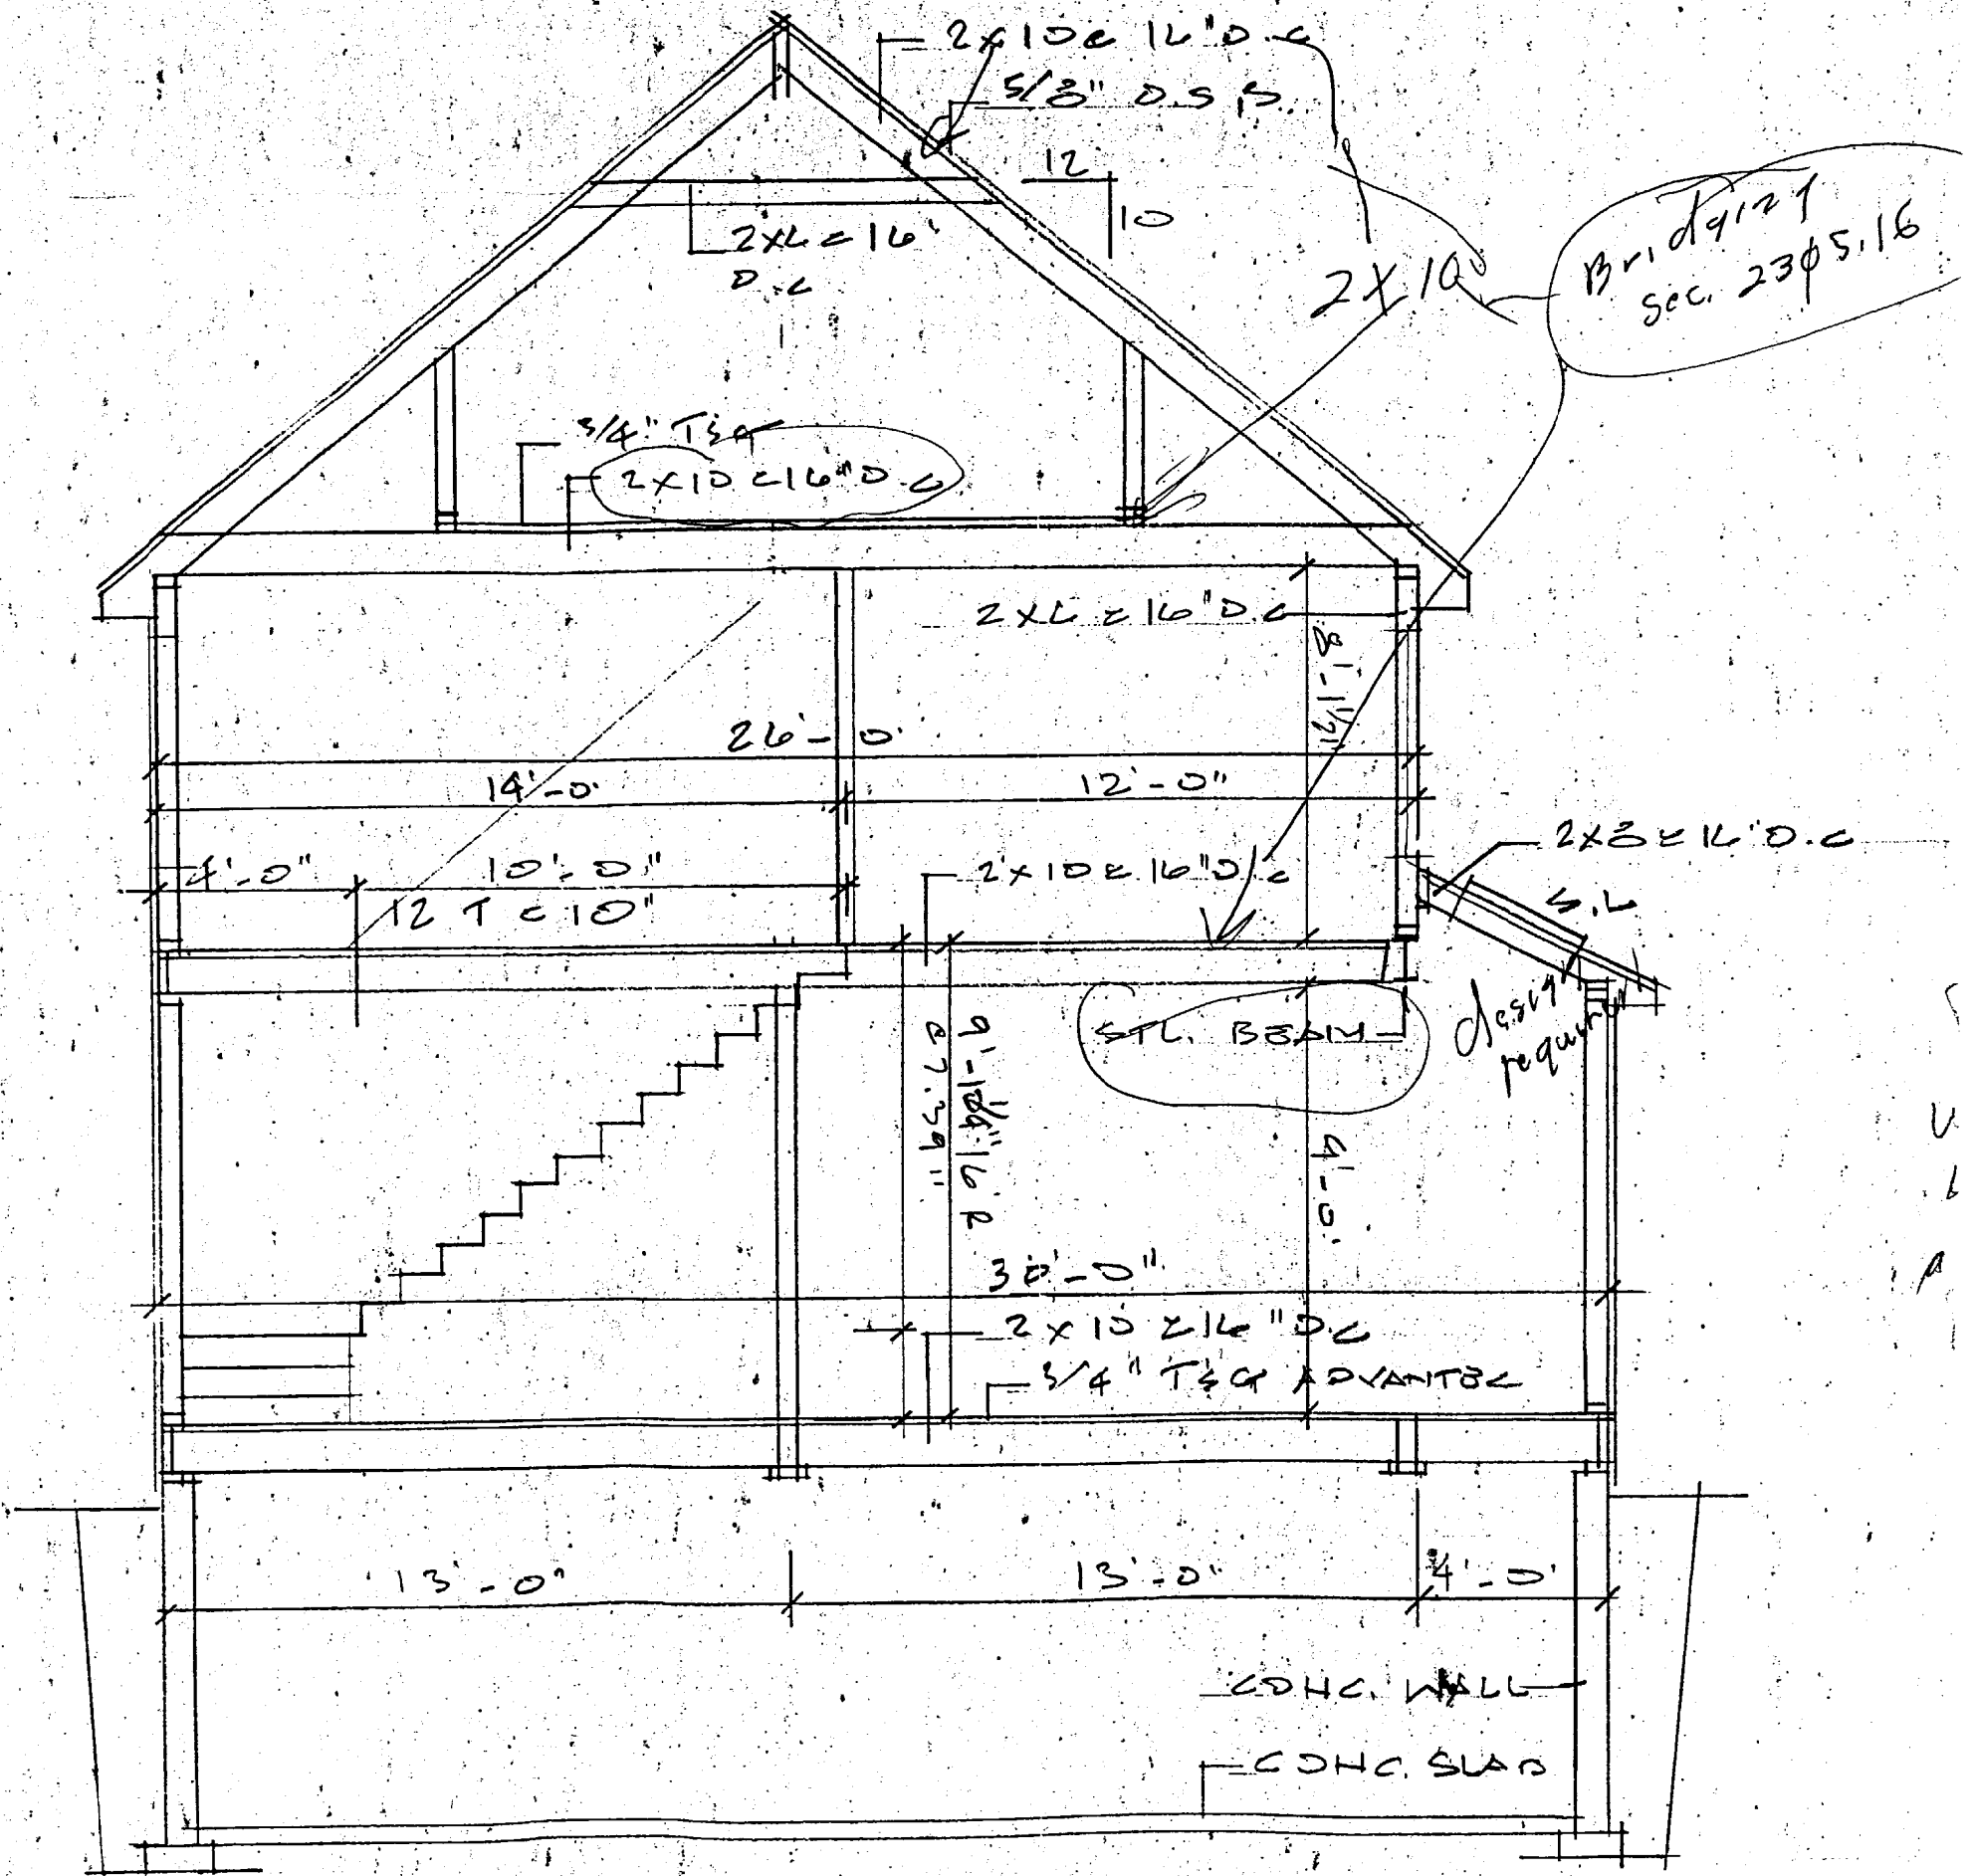 2x10 @ 16" O.C
5/8" O.S.B.
12
10
2x6 @ 16"
O.C
2 X 10
Bridging
sec. 2305.16
3/4" T&G
2x10 @ 16" O.C.
2x6 @ 16" O.C
8'-1 1/2"
26'-0"
14'-0"
12'-0"
4'-0"
10'-0"
12 T @ 10"
2x10 @ 16" O.C
2x8 @ 16" O.C
S.L
design
required
STL. BEAM
16 R
@ 7.39"
9'-0"
30'-0"
2x10 @ 16" O.C
3/4" T&G ADVANTEC
13'-0"
13'-0"
4'-0"
CONC. WALL
CONC. SLAB